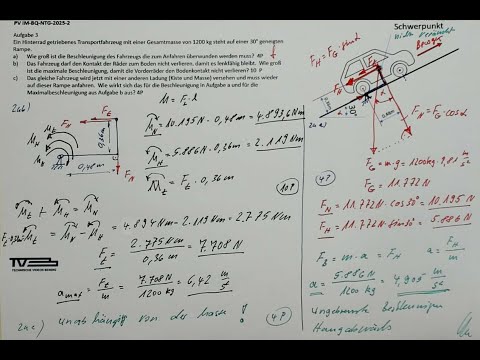 PV IM-BQ-NTG-2025-2
Aufgabe 3
Ein Hinterrad getriebenes Transportfahrzeug mit einer Gesamtmasse von 1200 kg steht auf einer 30° geneigten
Rampe.
a) Wie groß ist die Beschleunigung des Fahrzeugs die zum Anfahren überwunden werden muss? 4P
b) Das Fahrzeug darf den Kontakt der Räder zum Boden nicht verlieren, damit es lenkfähig bleibt. Wie groß
ist die maximale Beschleunigung, damit die Vorderräder den Bodenkontakt nicht verlieren? 10 P
c) Das gleiche Fahrzeug wird jetzt mit einer anderen Ladung (Kiste und Masse) versehen und muss wieder
auf dieser Rampe anfahren. Wie wirkt sich das für die Beschleunigung in Aufgabe a und für die
Maximalbeschleunigung aus Aufgabe b aus? 4P
Schwerpunkt
F_H = F_G · sin α
F_N = F_G · cos α
30°
2a a)
2a b)
M = F · l
F_t
0,36m
0,48m
F_N
M_t
M_N
M_H
M_N = 10.195 N · 0,48 m = 4.893,6 Nm
M_H = 5.886 N · 0,36 m = 2.119 Nm
M_t = F_t · 0,36 m
10P
M_t + M_H = M_N
M_t = M_N − M_H = 4.894 Nm − 2.119 Nm = 2.775 Nm
F_t = 2.775 Nm / 0,36 m = 7.708 N
a_max = F_t / m = 7.708 N / 1200 kg = 6,42 m/s²
2a c) unabhängig von der Masse !
4P
F_G = m · g = 1200 kg · 9,81 m/s²
F_G = 11.772 N
4P
F_N = 11.772 N · cos 30° = 10.195 N
F_H = 11.772 N · sin 30° = 5.886 N
F_B = m · a = F_H a = F_H / m
a = 5.886 N / 1200 kg = 4,905 m/s²
ungebremste Beschleunigung
Hangabwärts
TV